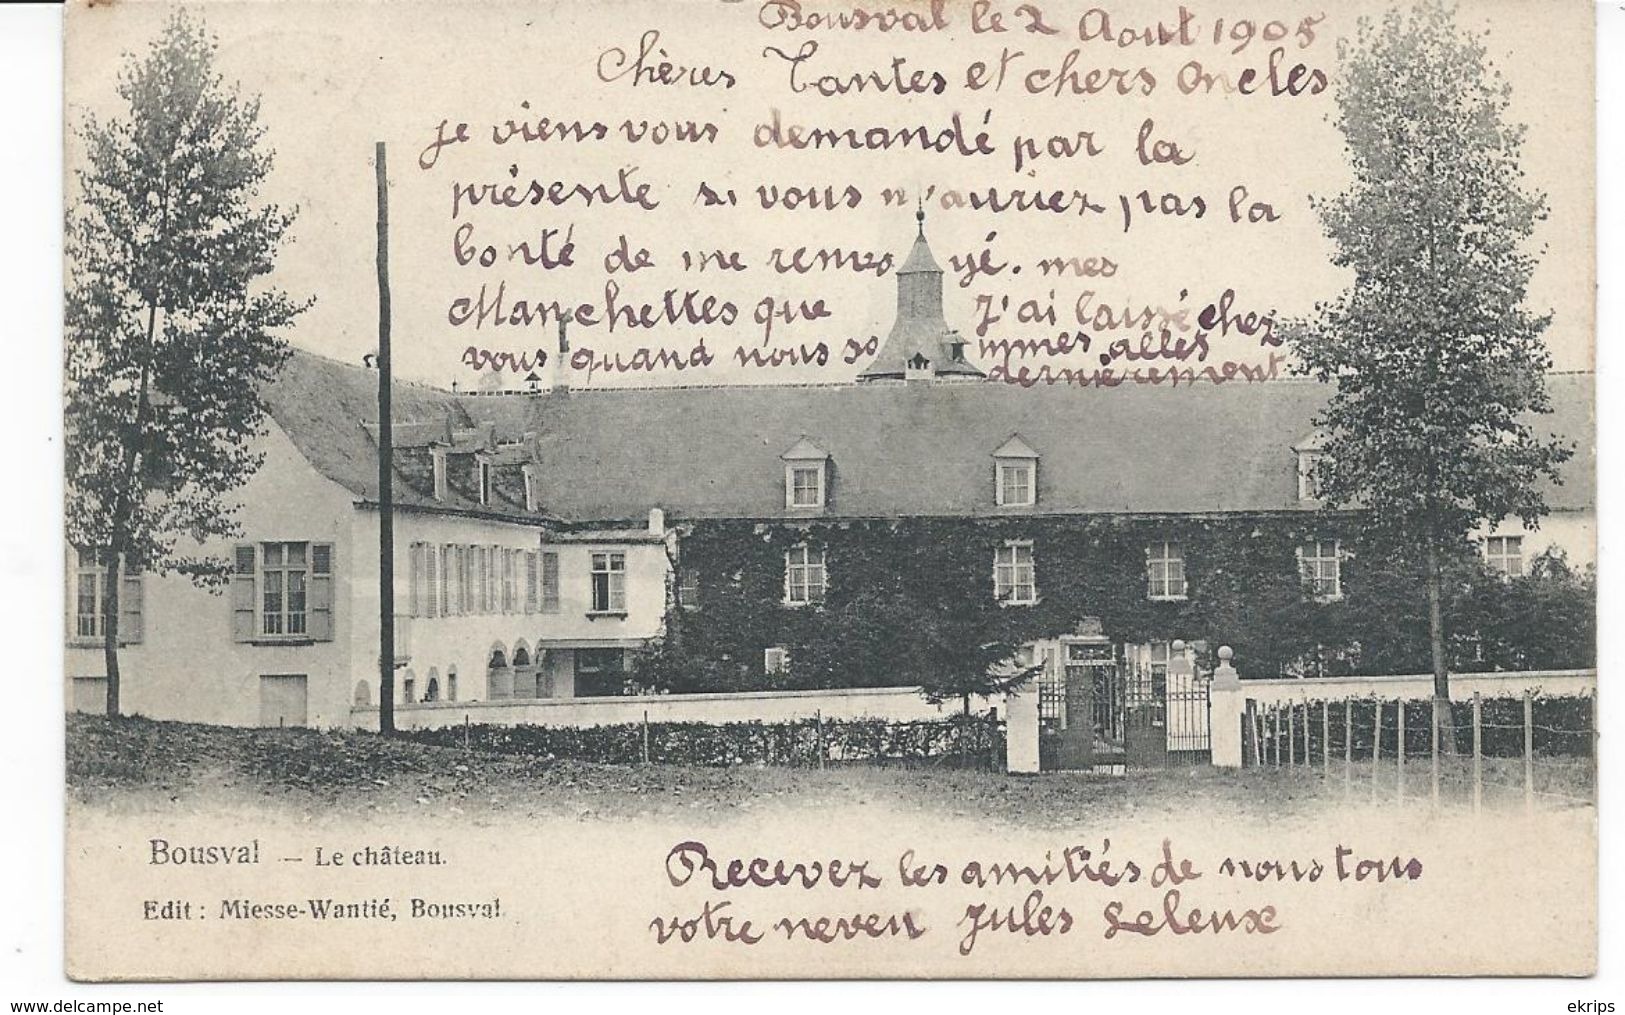 Bousval le 2 Aout 1905
Chères Tantes et chers oncles
je viens vous demandé par la
présente si vous n'auriez pas la
bonté de me renvoyé. mes
Manchettes que J'ai laissé chez
vous quand nous sommes allés
dernièrement
Bousval — Le château.
Edit : Miesse-Wantié, Bousval.
Recevez les amitiés de nous tous
votre neveu Jules Leleux
www.delcampe.net
ekrips